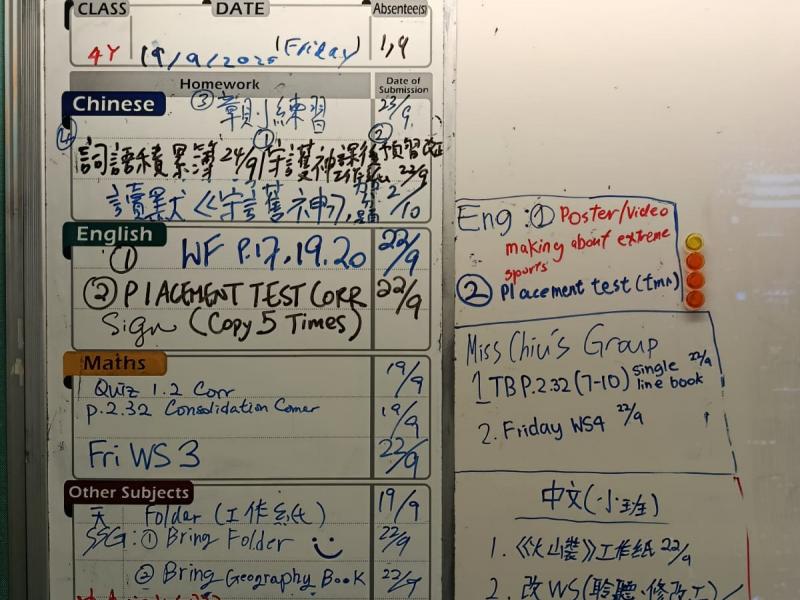 CLASS DATE Absentee(s)
4Y 19/9/2025 (Friday) 1,9
Homework Date of Submission
Chinese ③ 練習 23/9
④ 詞語積累簿 24/9 ① 守護神課後工作紙 22/9 ② 預習 改正
讀默《守護神》, 2/10
English ① WF P.17,19.20 22/9
② PLACEMENT TEST CORR 22/9
Sign (Copy 5 Times)
Maths
Quiz 1.2 Corr 19/9
p.2.32 Consolidation Corner 19/9
Fri WS 3 22/9
Other Subjects
Folder (工作紙) 19/9
SSG: ① Bring Folder 22/9
② Bring Geography Book 22/9
Eng: ① Poster/Video
making about extreme
sports
② Placement test (tmr)
Miss Chiu's Group
1 TB P.2.32 (7-10) single line book 22/9
2. Friday WS4 22/9
中文(小班)
1. 《火山裝》工作紙 22/9
2. 改WS(聆聽、修改工)